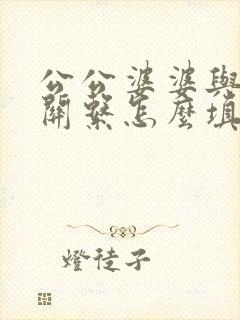 公公婆婆與
關繫怎麼填
燈徒子